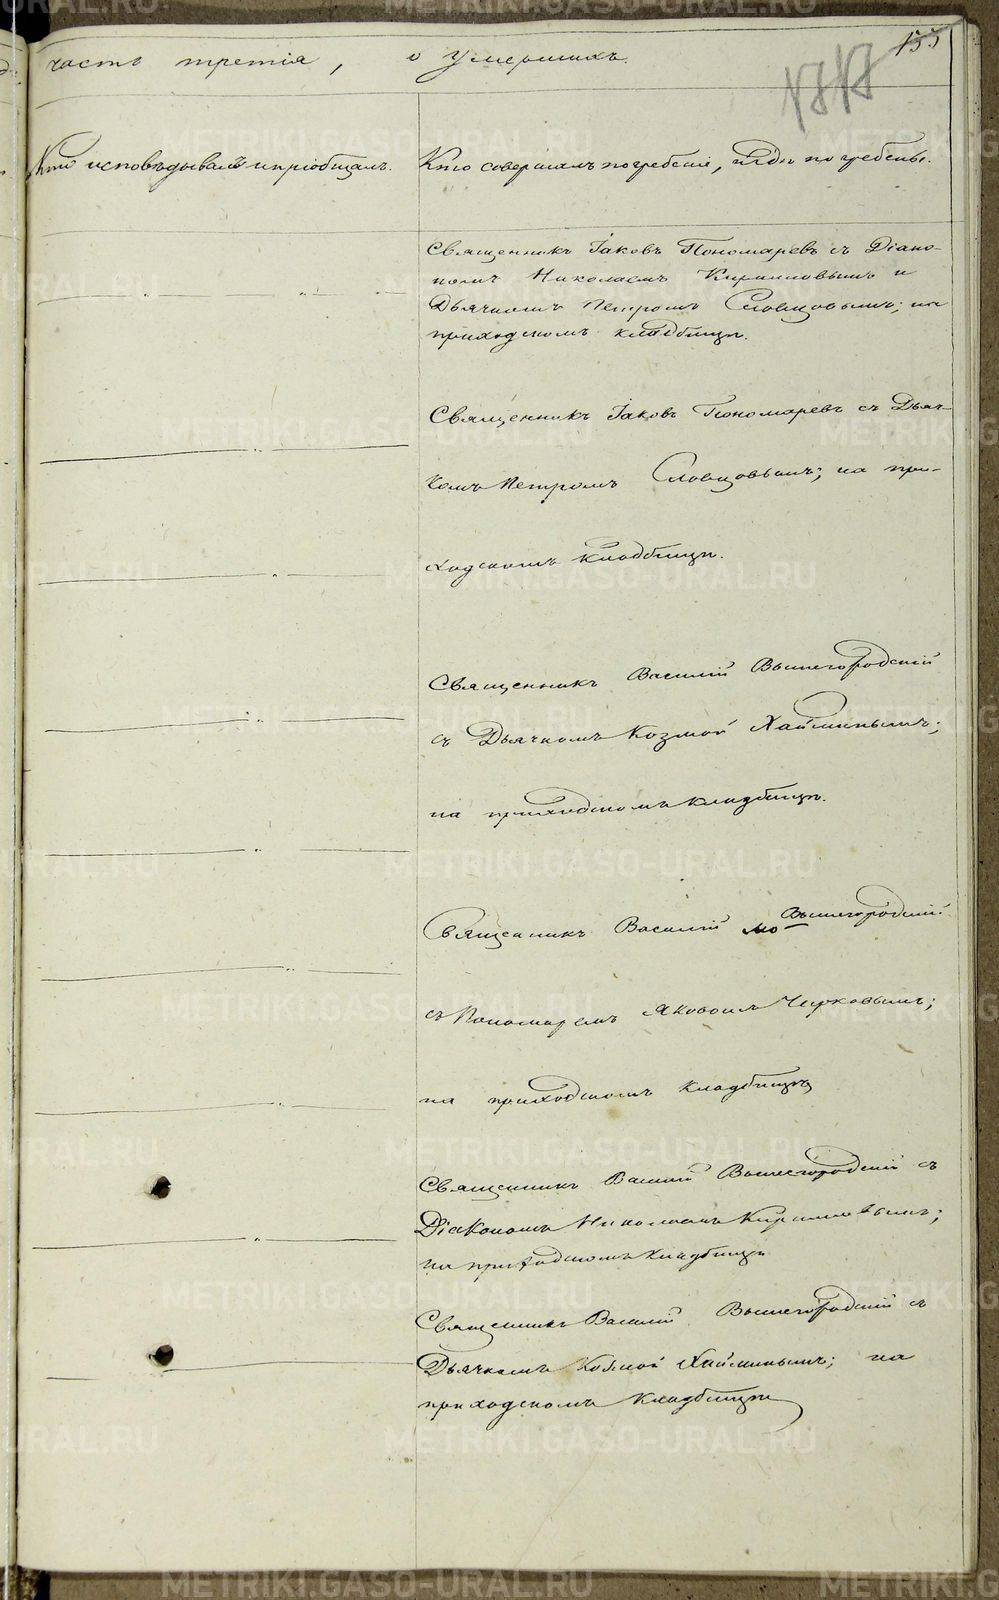 часть третія, о умершихъ.
155
Кто исповѣдывалъ и пріобщалъ.
Кто совершалъ погребеніе, и гдѣ погребены.
Священникъ Іаковъ Пономаревъ съ Діако-
номъ Николаемъ Кирилловымъ и
Дьячкомъ Петромъ Словцовымъ; на
приходскомъ кладбищѣ.
Священникъ Іаковъ Пономаревъ съ Дьяч-
комъ Петромъ Словцовымъ; на при-
ходскомъ кладбищѣ.
Священникъ Василій Вышегородскій
съ Дьячкомъ Козмой Хайминымъ;
на приходскомъ кладбищѣ.
Священникъ Василій Вышегородскій
съ Пономаремъ Яковомъ Чирковымъ;
на приходскомъ кладбищѣ
Священникъ Василій Вышегородскій съ
Діакономъ Николаемъ Кирилловымъ;
на приходскомъ кладбищѣ
Священникъ Василій Вышегородскій съ
Дьячкомъ Козмой Хайминымъ; на
приходскомъ кладбищѣ
METRIKI.GASO-URAL.RU